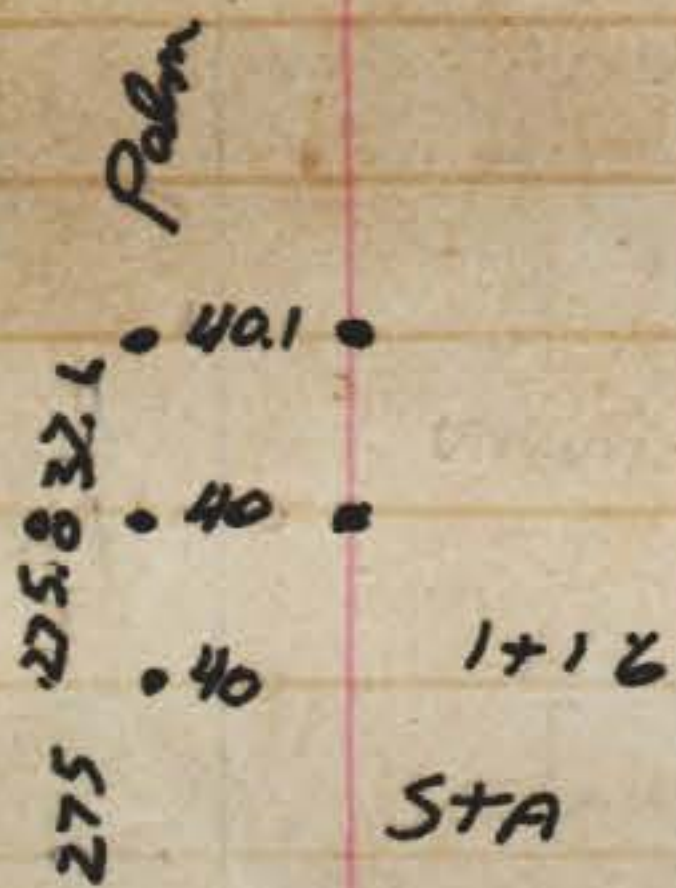 Palm
40.1
40
40
1+16
StA
275
275.8